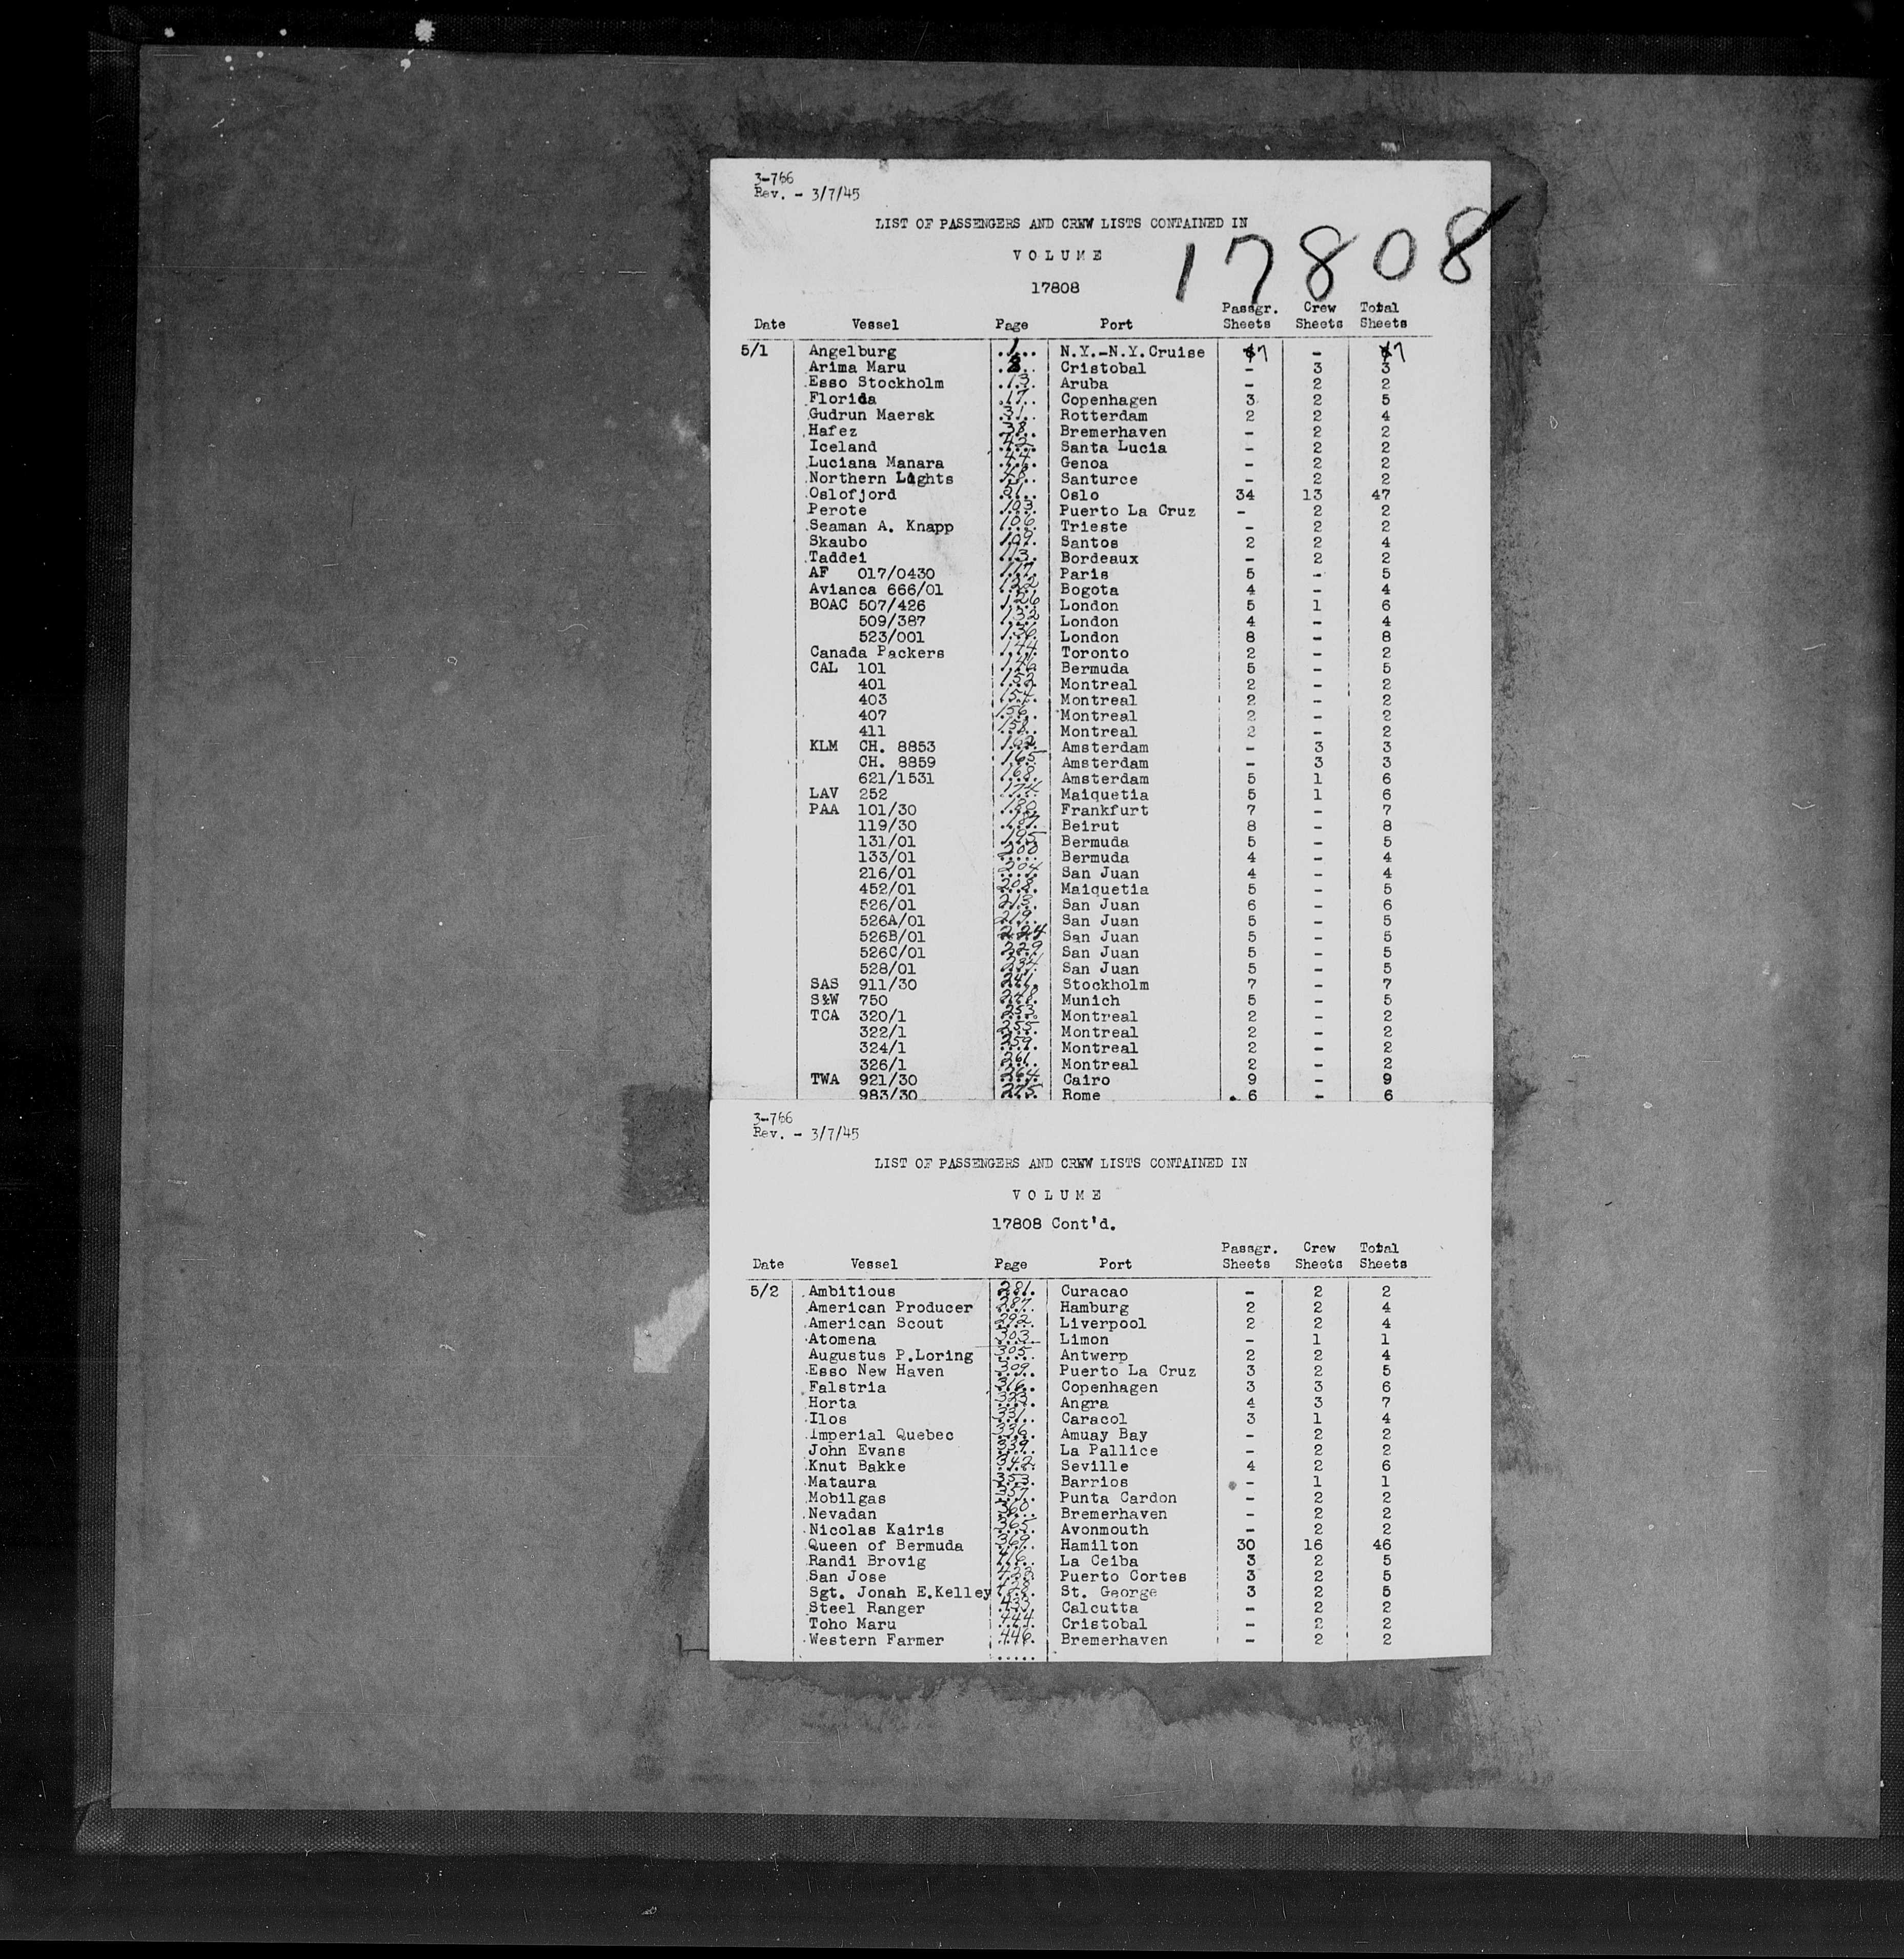 3-766
Rev. - 3/7/45
LIST OF PASSENGERS AND CREW LISTS CONTAINED IN
17808
VOLUME
17808
Date Vessel Page Port Passgr. Sheets Crew Sheets Total Sheets
5/1 Angelburg 1 N.Y.-N.Y.Cruise 7 - 7
Arima Maru 8 Cristobal - 3 3
Esso Stockholm 13 Aruba - 2 2
Florida 17 Copenhagen 3 2 5
Gudrun Maersk 31 Rotterdam 2 2 4
Hafez 38 Bremerhaven - 2 2
Iceland 42 Santa Lucia - 2 2
Luciana Manara 44 Genoa - 2 2
Northern Lights 48 Santurce - 2 2
Oslofjord 51 Oslo 34 13 47
Perote 103 Puerto La Cruz - 2 2
Seaman A. Knapp 106 Trieste - 2 2
Skaubo 109 Santos 2 2 4
Taddei 113 Bordeaux - 2 2
AF 017/0430 117 Paris 5 - 5
Avianca 666/01 122 Bogota 4 - 4
BOAC 507/426 126 London 5 1 6
509/387 132 London 4 - 4
523/001 136 London 8 - 8
Canada Packers 144 Toronto 2 - 2
CAL 101 146 Bermuda 5 - 5
401 152 Montreal 2 - 2
403 154 Montreal 2 - 2
407 156 Montreal 2 - 2
411 158 Montreal 2 - 2
KLM CH. 8853 162 Amsterdam - 3 3
CH. 8859 165 Amsterdam - 3 3
621/1531 168 Amsterdam 5 1 6
LAV 252 174 Maiquetia 5 1 6
PAA 101/30 180 Frankfurt 7 - 7
119/30 187 Beirut 8 - 8
131/01 195 Bermuda 5 - 5
133/01 200 Bermuda 4 - 4
216/01 204 San Juan 4 - 4
452/01 208 Maiquetia 5 - 5
526/01 213 San Juan 6 - 6
526A/01 219 San Juan 5 - 5
526B/01 224 San Juan 5 - 5
526C/01 229 San Juan 5 - 5
528/01 234 San Juan 5 - 5
SAS 911/30 241 Stockholm 7 - 7
S&W 750 248 Munich 5 - 5
TCA 320/1 253 Montreal 2 - 2
322/1 255 Montreal 2 - 2
324/1 259 Montreal 2 - 2
326/1 261 Montreal 2 - 2
TWA 921/30 264 Cairo 9 - 9
983/30 275 Rome 6 - 6
3-766
Rev. - 3/7/45
LIST OF PASSENGERS AND CREW LISTS CONTAINED IN
VOLUME
17808 Cont'd.
Date Vessel Page Port Passgr. Sheets Crew Sheets Total Sheets
5/2 Ambitious 281 Curacao - 2 2
American Producer 287 Hamburg 2 2 4
American Scout 292 Liverpool 2 2 4
Atomena 303 Limon - 1 1
Augustus P.Loring 305 Antwerp 2 2 4
Esso New Haven 309 Puerto La Cruz 3 2 5
Falstria 316 Copenhagen 3 3 6
Horta 323 Angra 4 3 7
Ilos 331 Caracol 3 1 4
Imperial Quebec 336 Amuay Bay - 2 2
John Evans 339 La Pallice - 2 2
Knut Bakke 342 Seville 4 2 6
Mataura 353 Barrios - 1 1
Mobilgas 357 Punta Cardon - 2 2
Nevadan 360 Bremerhaven - 2 2
Nicolas Kairis 365 Avonmouth - 2 2
Queen of Bermuda 369 Hamilton 30 16 46
Randi Brovig 416 La Ceiba 3 2 5
San Jose 423 Puerto Cortes 3 2 5
Sgt. Jonah E.Kelley 428 St. George 3 2 5
Steel Ranger 433 Calcutta - 2 2
Toho Maru 444 Cristobal - 2 2
Western Farmer 446 Bremerhaven - 2 2